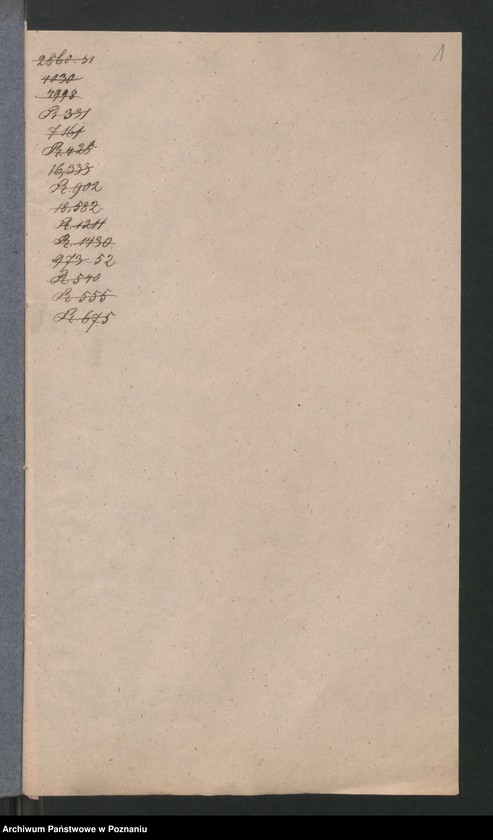 1
2860-51
4030
7998
R 331
7161
R 425
16,333
R 902
18,582
R 1211
R 1430
973-52
R 540
R 555
R 675
Archiwum Państwowe w Poznaniu